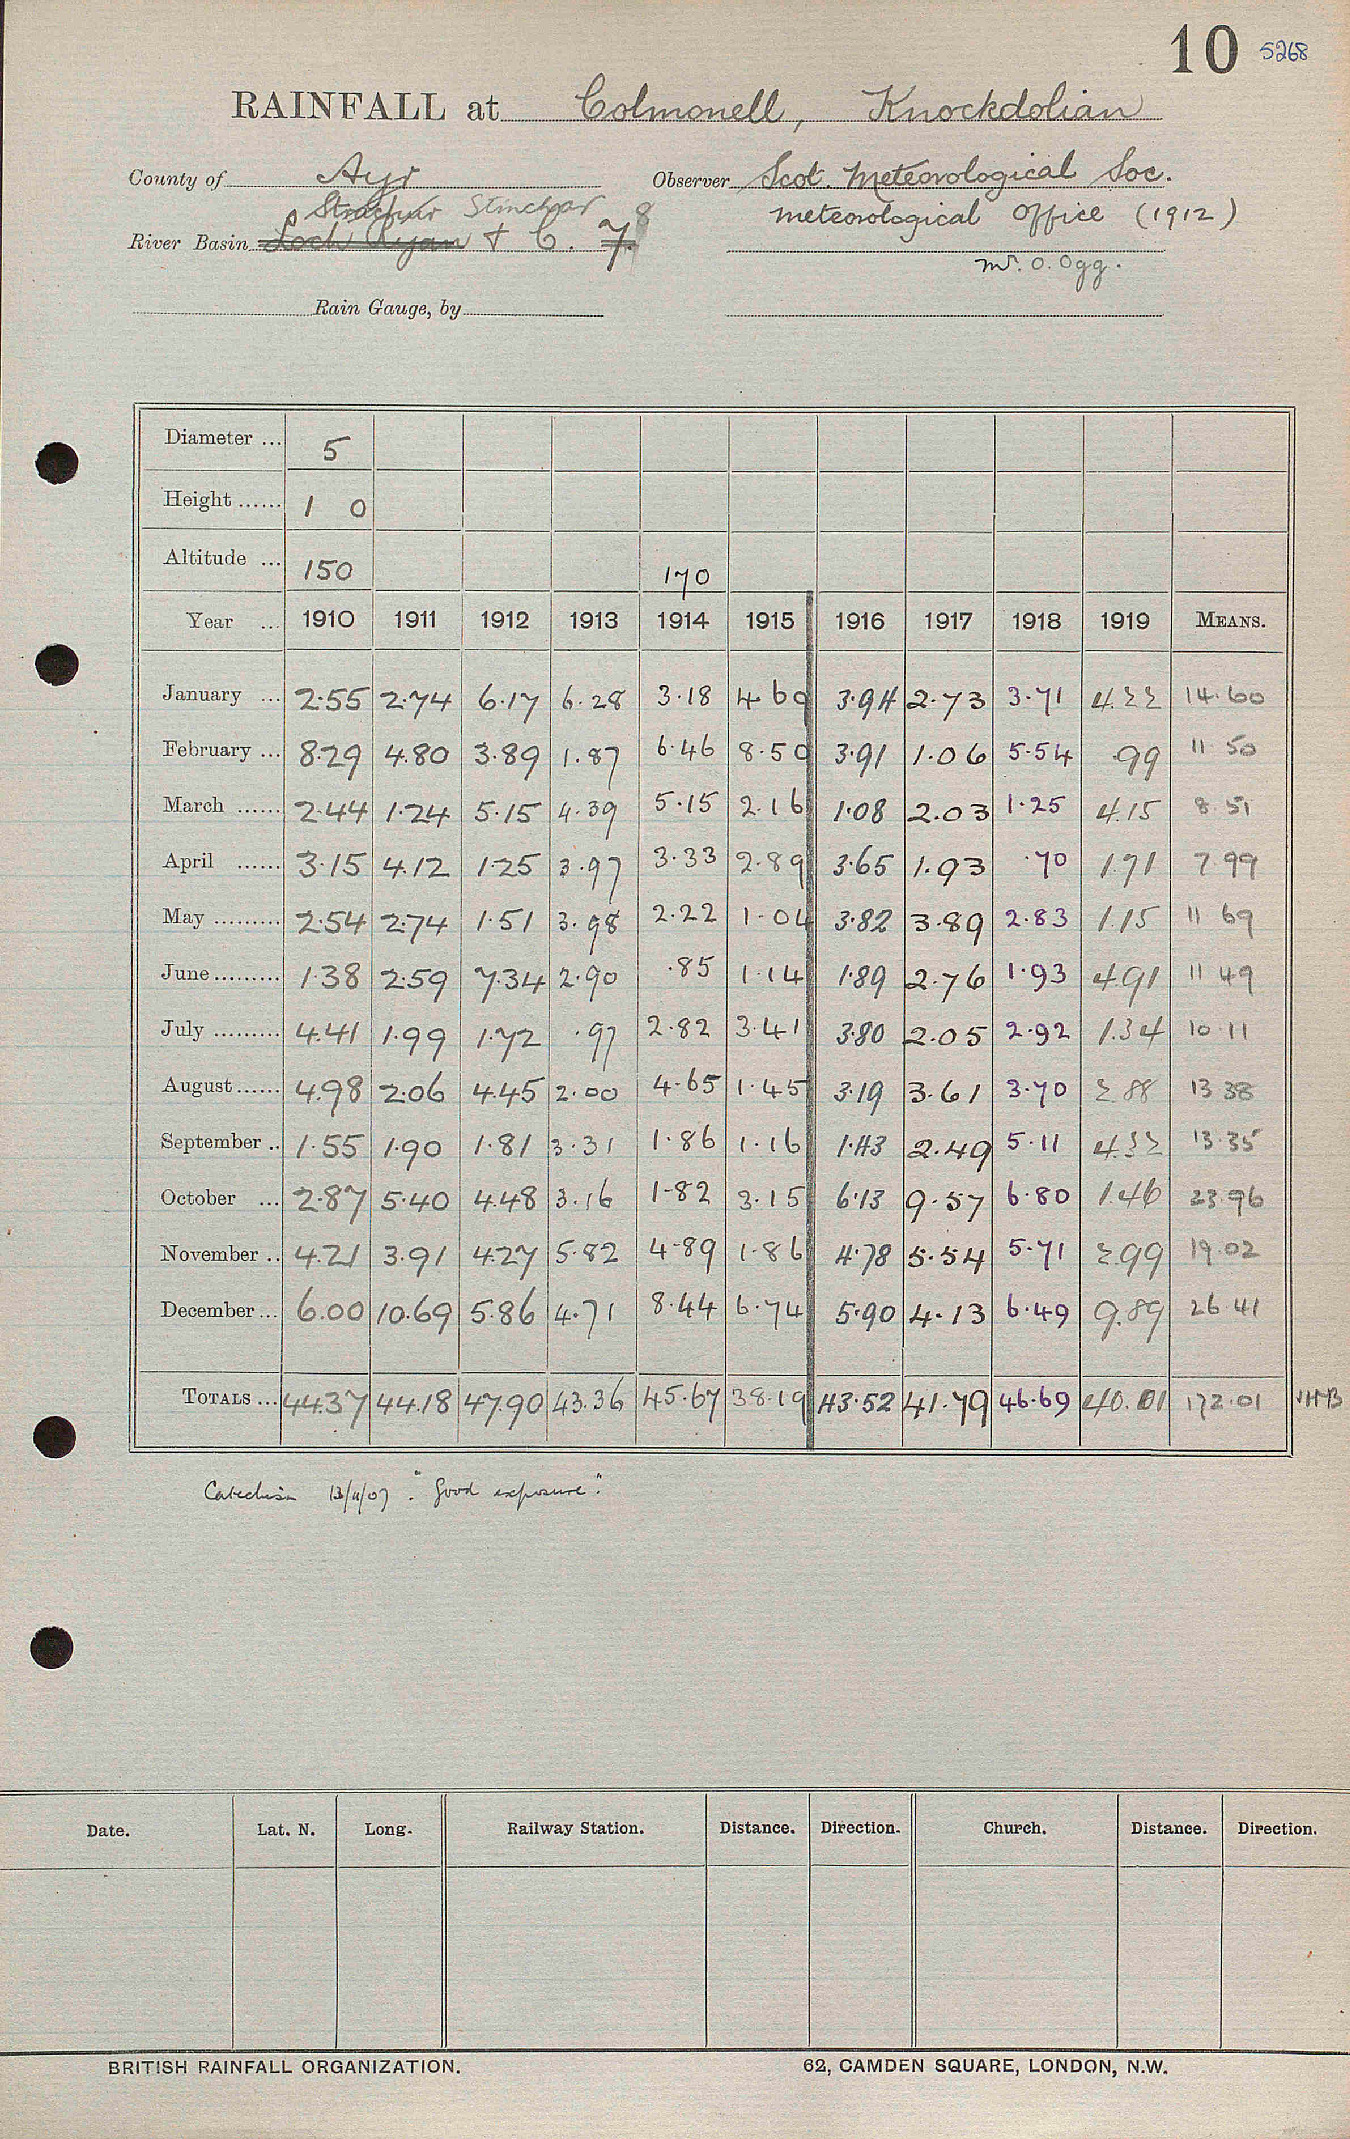 10 5268
RAINFALL at Colmonell, Knockdolian
County of Ayr Observer Scot. Meteorological Soc.
Stinchar Meteorological Office (1912)
River Basin Loch Ryan & C. 7. 8
Mr. O. Ogg.
Rain Gauge, by
Diameter ... 5
Height ...... 1 0
Altitude ... 150 170
Year ... 1910 1911 1912 1913 1914 1915 1916 1917 1918 1919 MEANS.
January ... 2.55 2.74 6.17 6.28 3.18 4.69 3.94 2.73 3.71 4.22 14.60
February ... 8.29 4.80 3.89 1.87 6.46 8.50 3.91 1.06 5.54 .99 11 50
March ...... 2.44 1.24 5.15 4.39 5.15 2.16 1.08 2.03 1.25 4.15 8.51
April ...... 3.15 4.12 1.25 3.97 3.33 2.89 3.65 1.93 .70 1.71 7.99
May ......... 2.54 2.74 1.51 3.98 2.22 1.04 3.82 3.89 2.83 1.15 11 69
June ......... 1.38 2.59 7.34 2.90 .85 1.14 1.89 2.76 1.93 4.91 11 49
July ......... 4.41 1.99 1.72 .97 2.82 3.41 3.80 2.05 2.92 1.34 10.11
August ...... 4.98 2.06 4.45 2.00 4.65 1.45 3.19 3.61 3.70 2.88 13 38
September .. 1.55 1.90 1.81 3.31 1.86 1.16 1.43 2.49 5.11 4.32 13.35
October ... 2.87 5.40 4.48 3.16 1.82 3.15 6.13 9.57 6.80 1.46 23.96
November .. 4.21 3.91 4.27 5.82 4.89 1.86 4.78 5.54 5.71 2.99 19.02
December ... 6.00 10.69 5.86 4.71 8.44 6.74 5.90 4.13 6.49 9.89 26.41
TOTALS ... 44.37 44.18 47.90 43.36 45.67 38.19 43.52 41.79 46.69 40.01 172.01
Catechism 13/11/07. "Good exposure".
Date. Lat. N. Long. Railway Station. Distance. Direction. Church. Distance. Direction.
BRITISH RAINFALL ORGANIZATION. 62, CAMDEN SQUARE, LONDON, N.W.